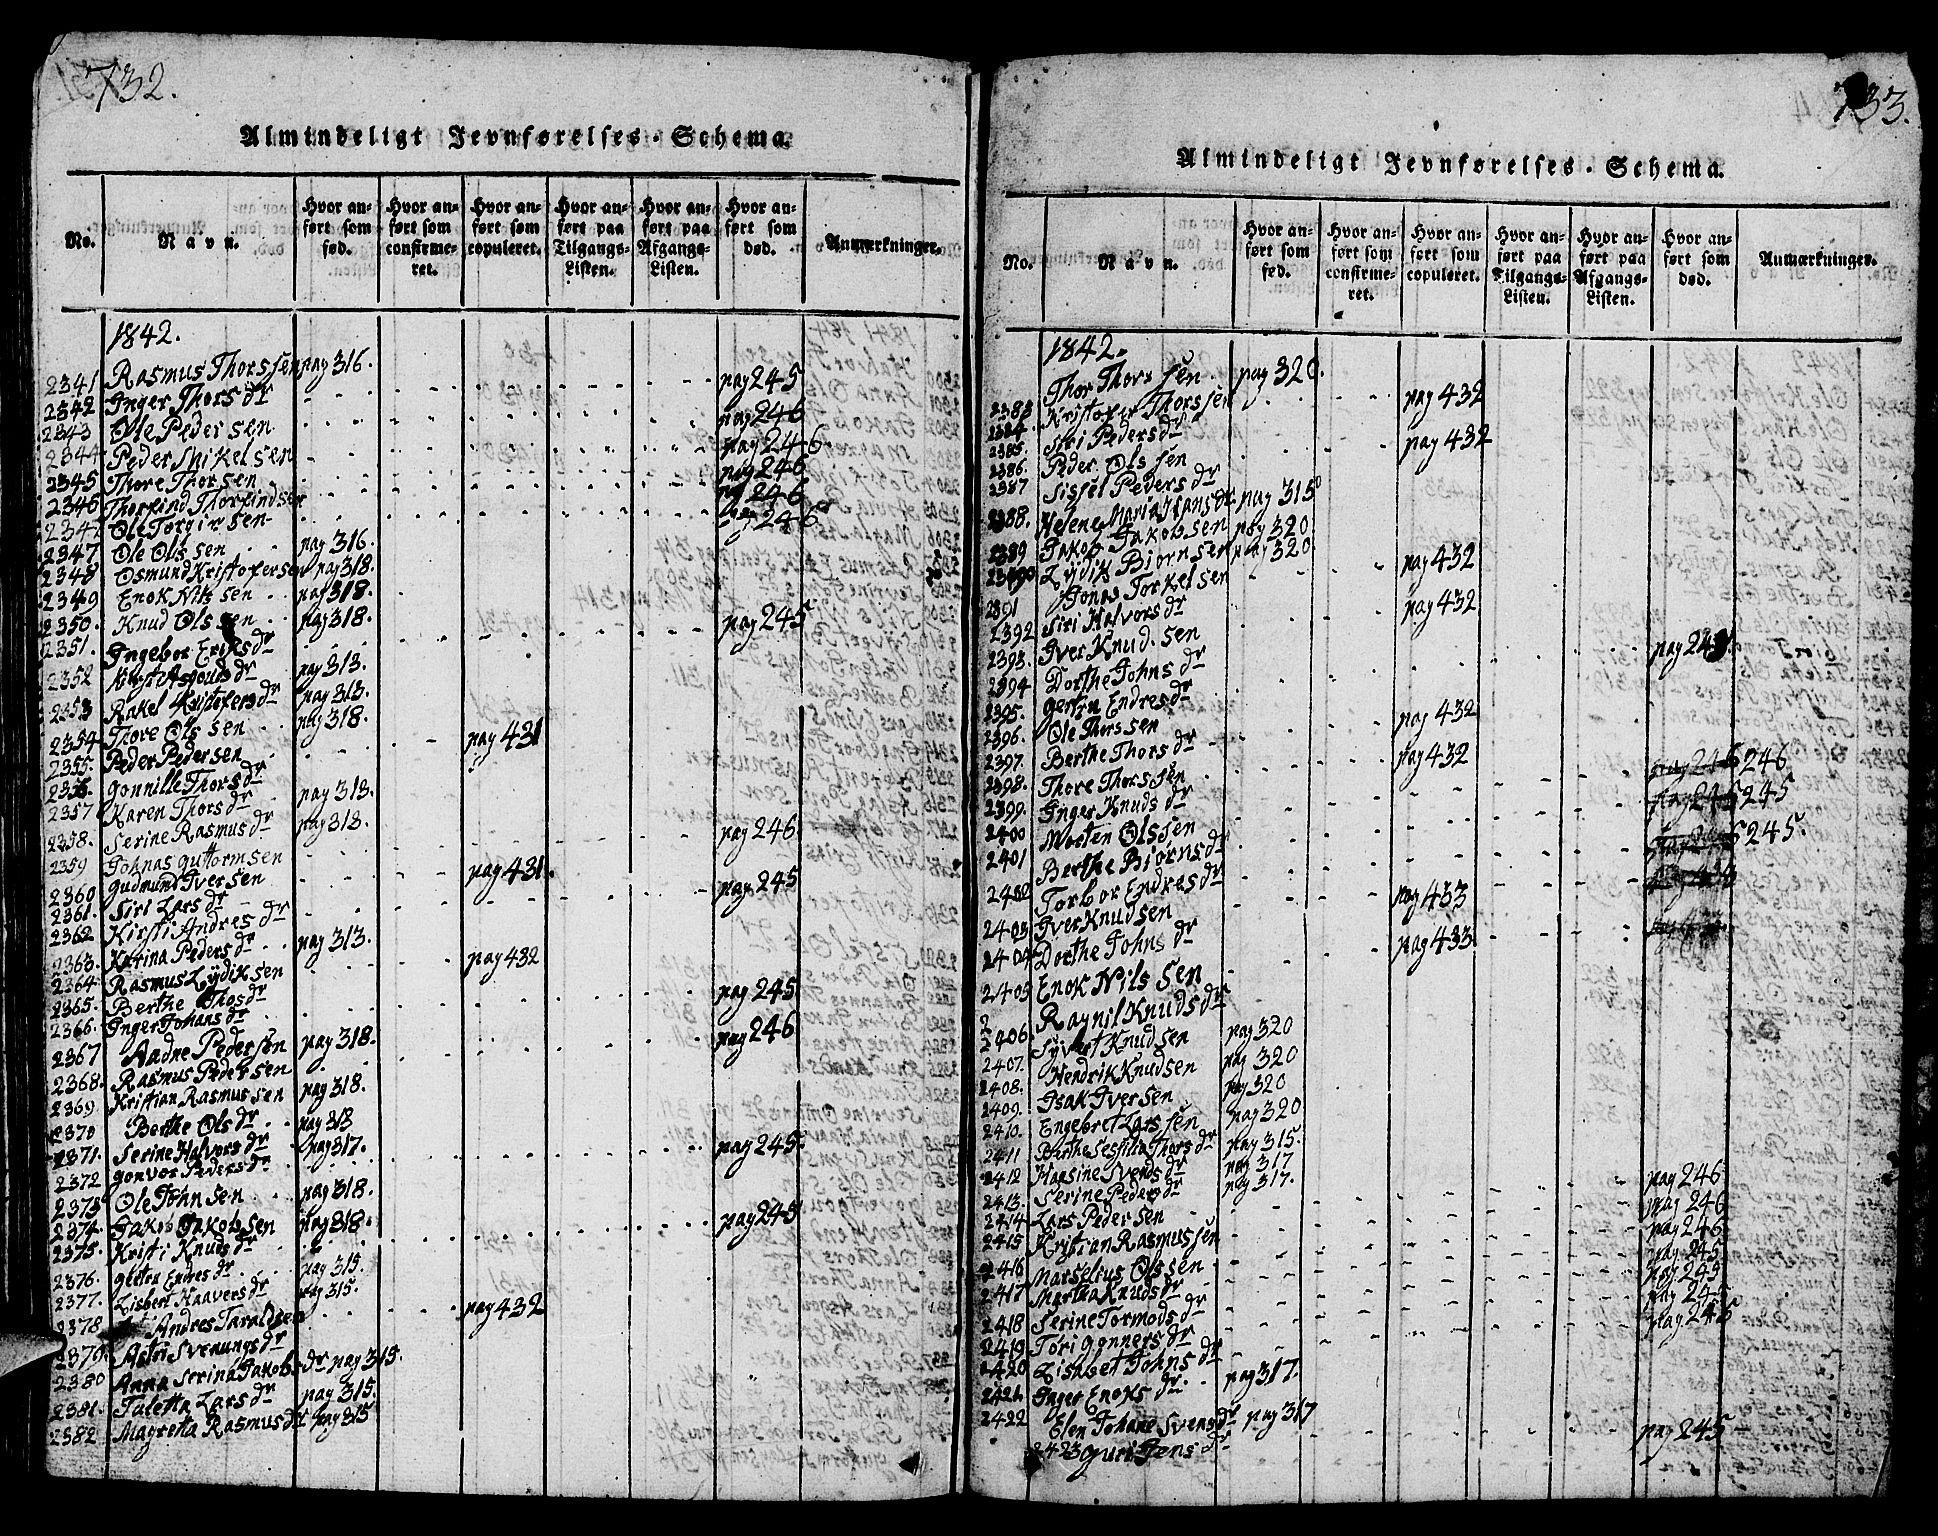 732.
Almindeligt Jevnførelses-Schema.
No.
Navn.
Hvor an-
ført som
fød.
Hvor an-
ført som
confirme-
ret.
Hvor an-
ført som
copuleret.
Hvor an-
ført paa
Tilgangs-
Listen.
Hvor an-
ført paa
Afgangs-
Listen.
Hvor an-
ført som
død.
Anmærkninger.
1842.
2341 Rasmus Thorssen pag 316.
2342 Inger Thorsdr pag 245
2343 Ole Pedersen pag 246
2344 Peder Mikelsen pag 246
2345 Thore Thorsen pag 246
2346 Thorkind Thorkindsen pag 246
Ole Torgirsen pag 246
2347 Ole Olssen pag 316.
2348 Osmund Kristofersen pag 318.
2349 Enok Nilssen pag 318.
2350. Knud Olssen pag 318.
2351. Ingebor Eriksdr pag 245
2352 dr pag 313.
2353 Rakel Kristofersdr pag 313.
2354 Thore Olssen pag 318.
2355. Peder Pedersen pag 431
2356. Gonnille Thorsdr
2357 Karen Thorsdr pag 313.
2358. Serine Rasmusdr pag 313.
2359 Johnas Guttormsen pag 246.
2360 Gudmund Iversen pag 431.
2361. Siri Larsdr
2362 Kirsti Andresdr pag 245
2363. Katrina Pedersdr pag 313.
2364. Rasmus Lÿdiksen pag 432
2365. Berthe Thosdr
2366. Inger Johansdr pag 245
2367 Aadne Pedersen pag 318.
2368. Rasmus Pedersen pag 246
2369. Kristian Rasmussen pag 318.
2370 Berthe Olsdr pag 313
2371. Serine Halvorsdr pag 317.
2372 Gonvor Pedersdr pag 245.
2373 Ole Johnsen pag 318.
2374. Jakob Jakobssen pag 318.
2375. Kristi Knudsdr pag 245
2376. Endresdr pag 315.
2377. Lisbert Haaversdr pag 315.
2378 Andres Taraldsen pag 432
2379. Astri Svenungsdr
2380 Anna Serina Jakobsdr pag 315.
2381. Taletta Larsdr pag 315.
2382 Magreta Rasmusdr pag 315
733.
Almindeligt Jevnførelses-Schema.
No.
Navn.
Hvor an-
ført som
fød.
Hvor an-
ført som
confirme-
ret.
Hvor an-
ført som
copuleret.
Hvor an-
ført paa
Tilgangs-
Listen.
Hvor an-
ført paa
Afgangs-
Listen.
Hvor an-
ført som
død.
Anmærkninger.
1842.
2383 Thor Thorssen pag 320.
2384. Kristofer Thorssen pag 432
2385. Siri Pedersdr
2386. Peder Olssen pag 432
2387 Sissel Pedersdr
2388. Helene Maria Hansdr pag 315
2389 Jakob Jakobsen pag 320
2390 Lÿdik Bjørnsen pag 320
2391 Jonas Torkelsen pag 432
2392 Siri Halvorsdr
2393. Iver Knudsen pag 432
2394 Dorthe Johnsdr
2395. Gertru Endresdr
2396. Ole Thorssen pag 432
2397 Berthe Thorsdr
2398. Thore Thorssen pag 432
2399. Inger Knudsdr 246
2400 Morten Olssen 245
2401 Berthe Bjørnsdr 245.
2402 Torbor Endresdr
2403 Iver Knudsen pag 433
2404 Dorthe Johnsdr
2405 Enok Nilssen pag 433
Raynil Knudsdr
2406. Syvert Knudsen pag 320
2407. Hendrik Knudsen pag 320
2408. Isak Iversen pag 320
2409. Engebret Larssen pag 320
2410. Berthe Sesselia Thorsdr pag 315.
2411 Hansine Svendsdr pag 317
2412 Serine Pedersdr pag 317.
2413. Lars Pedersen pag 246
2414 Kristian Rasmussen pag 246
2415 Marselius Olssen pag 246
2416 Martha Knudsdr pag 245
2417 Serine Tormodsdr pag 245
2418 Tori Gonnersdr pag 245
2419 Lisabet Johnsdr pag 245
2420 Inger Enoksdr pag 317.
2422 Elen Johane Svensdr pag 317
2423 Guri Jensdr pag 245